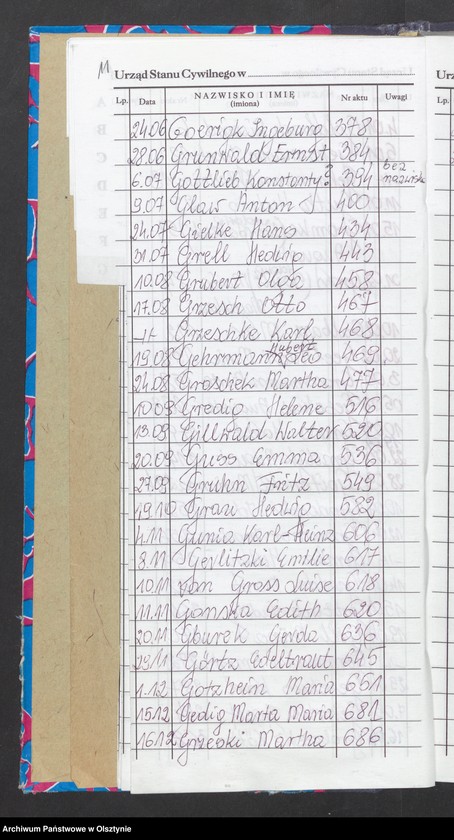 M
Urząd Stanu Cywilnego w
Urz
Lp. Data NAZWISKO I IMIĘ (imiona) Nr aktu Uwagi
Lp.
24.06 Goerigk Ingeburg 378
28.06 Grunwald Ernst 384
6.07 Gottlieb Konstanty? 394 bez nazwiska
9.07 Glaw Anton 400
24.07 Gielke Hans 434
31.07 Grell Hedwig 443
10.08 Grubert Olga 458
17.08 Grzesch Otto 467
-II- Grzeschke Karl 468
19.08 Gehrmann Hubert Leo 469
24.08 Groschek Martha 477
10.09 Gredig Helene 516
13.09 Gillwald Walter 520
20.09 Guss Emma 536
27.09 Gruhn Fritz 549
19.10 Grau Hedwig 582
4.11 Gunia Karl-Heinz 606
8.11 Gerlitzki Emilie 617
10.11 van Gross Luise 618
11.11 Gomska Edith 620
20.11 Gburek Gerda 636
29.11 Görtz Edeltraut 645
1.12 Gotzhein Maria 651
15.12 Gedig Marta Maria 681
16.12 Grzeski Martha 686
Archiwum Państwowe w Olsztynie